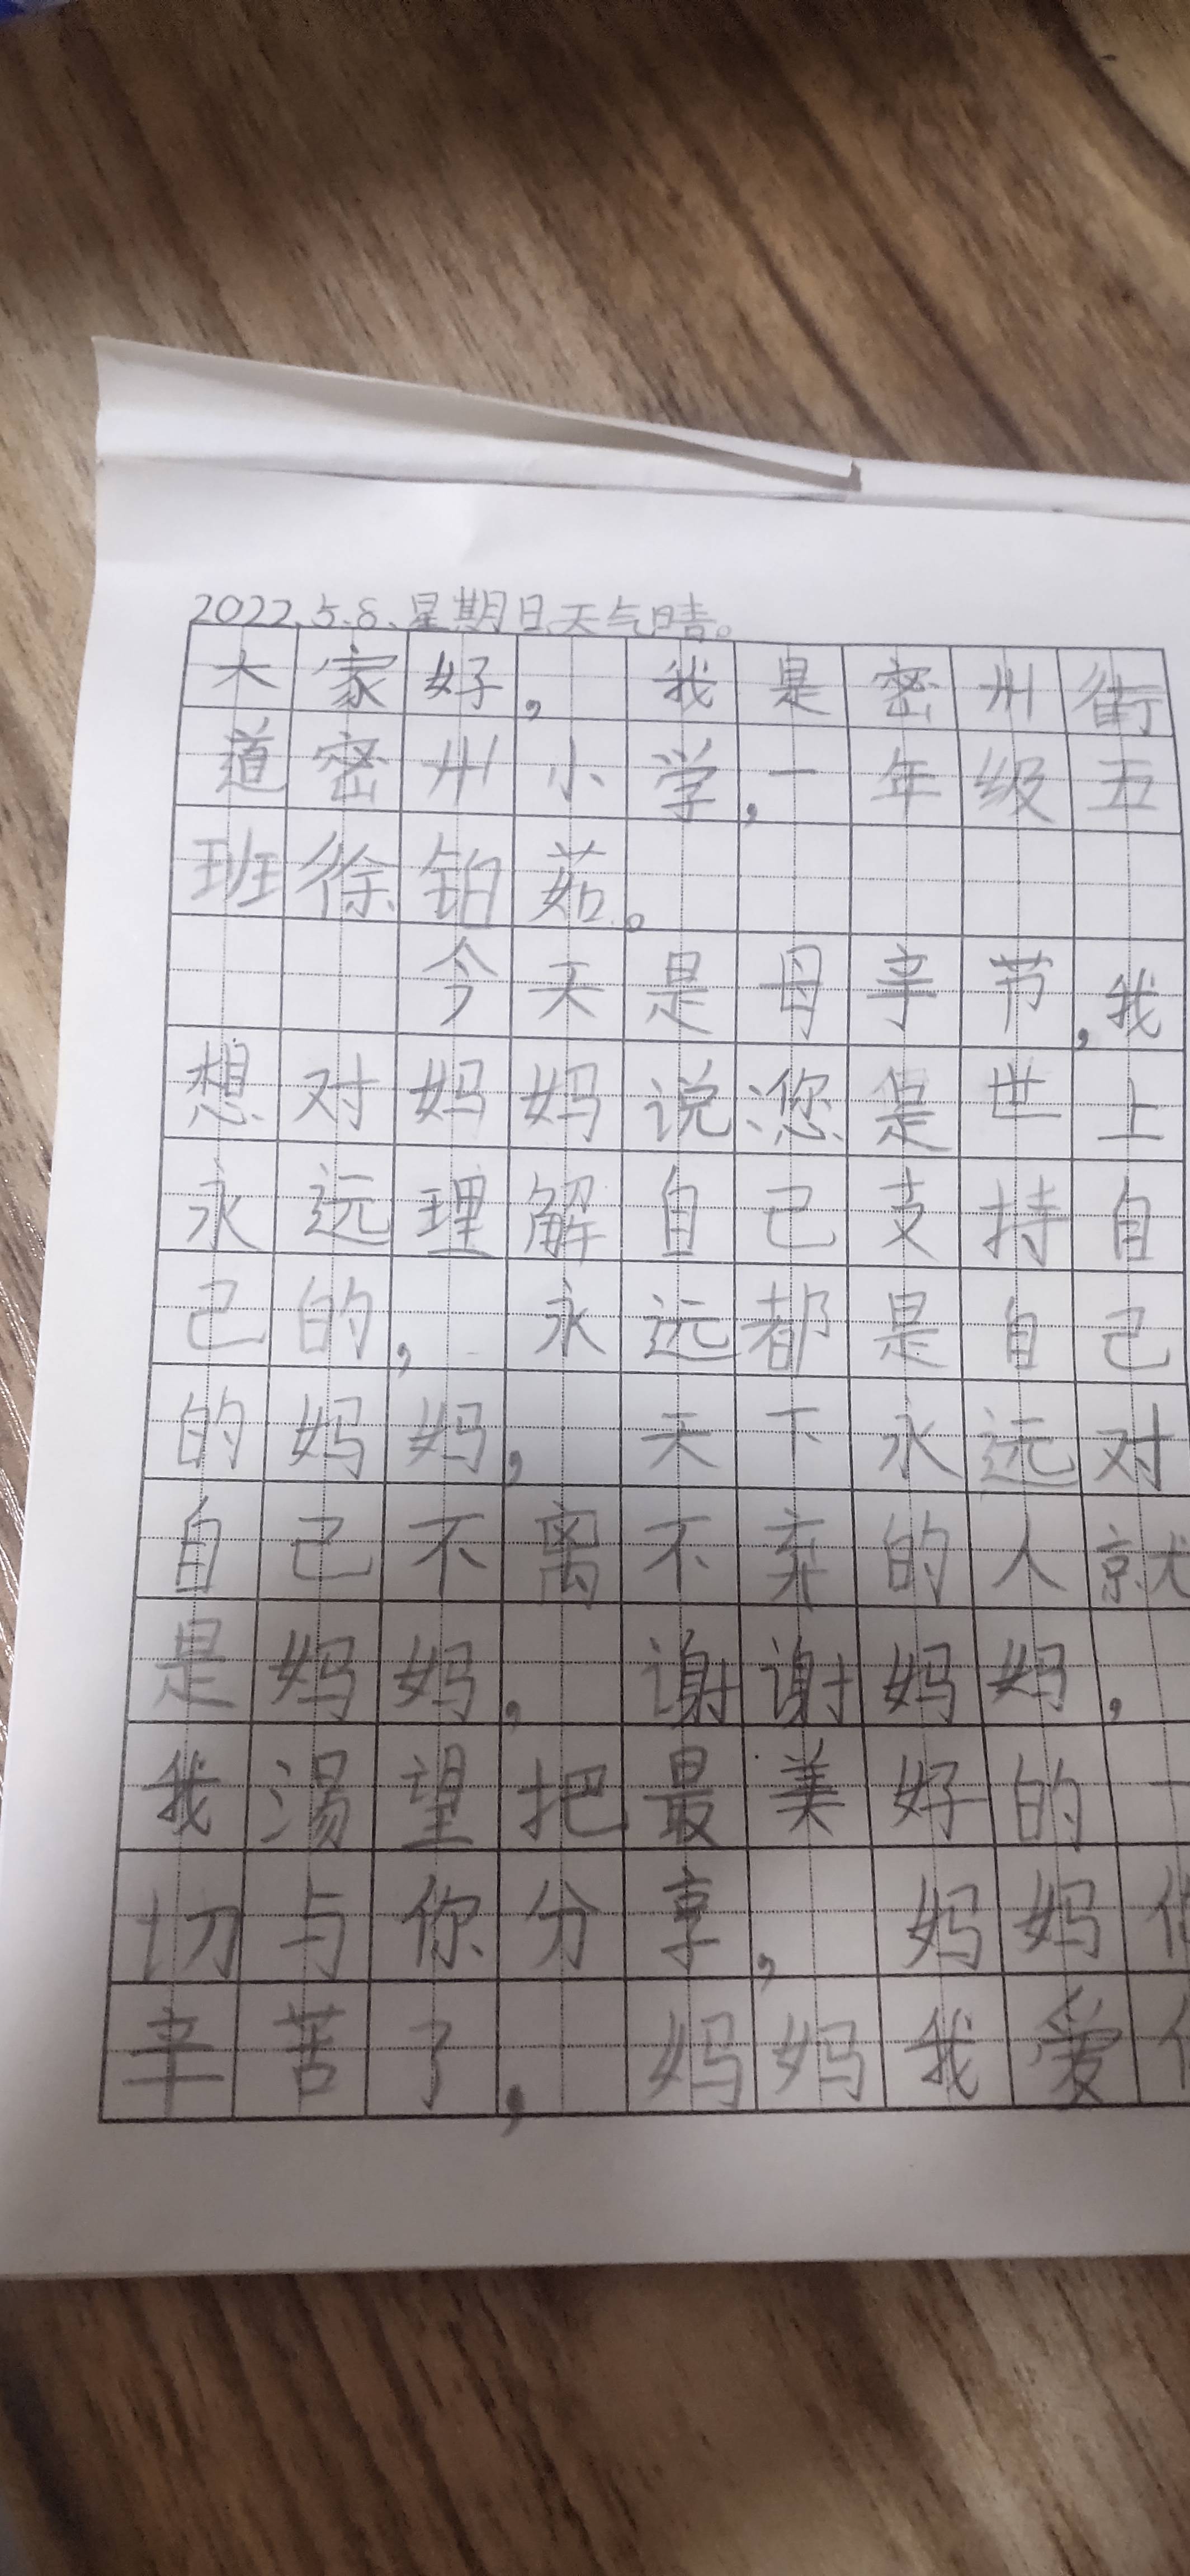 2022.5.8.星期日.天气晴。
大家好，我是密州街
道密州小学，一年级五
班徐铂茹。
今天是母亲节，我
想对妈妈说：您是世上
永远理解自己支持自
己的，永远都是自己
的妈妈，天下永远对
自己不离不弃的人就
是妈妈，谢谢妈妈，
我渴望把最美好的一
切与你分享，妈妈
辛苦了，妈妈我爱